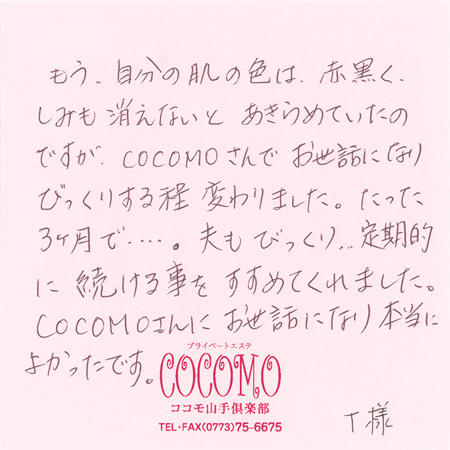 もう、自分の肌の色は、赤黒く、
しみも消えないと あきらめていたの
ですが、COCOMOさんで お世話になり
びっくりする程 変わりました。たった
3ヶ月で・・・・。夫も びっくり、、定期的
に 続ける事を すすめてくれました。
COCOMOさんに お世話になり 本当に
よかったです。
プライベートエステ
COCOMO
ココモ山手倶楽部
TEL・FAX(0773)75-6675
T様